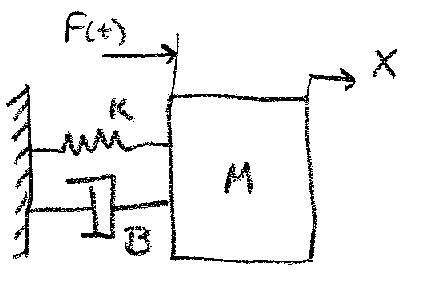 F(t)
X
K
M
B